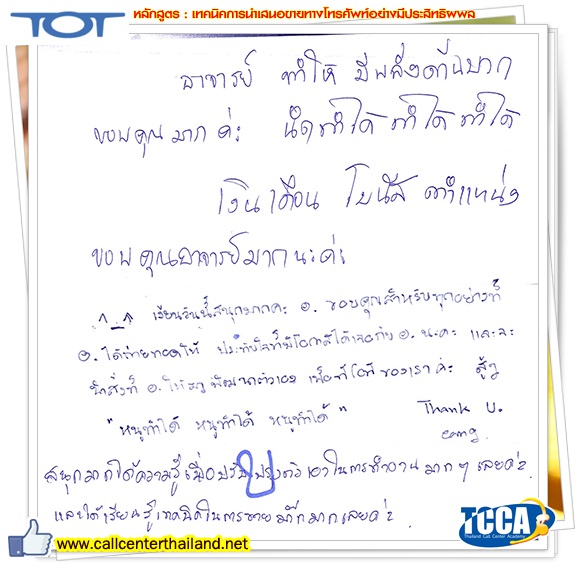 TOT หลักสูตร : เทคนิคการนำเสนอขายทางโทรศัพท์อย่างมีประสิทธิผล
อาจารย์ ทำให้ มีพลังด้านบวก
ขอบคุณมาก ค่ะ ทำได้ ทำได้ ทำได้
เงินเดือน โบนัส ตำแหน่ง
ขอบคุณอาจารย์มากนะค่ะ
^_^ เรียนวันนี้สนุกมากคะ อ. ขอบคุณสำหรับทุกอย่างที่
อ. ได้ถ่ายทอดให้ ประทับใจที่มีโอกาสได้เจอกับ อ. นะคะ และจะ
สิ่งที่ อ. ให้ พัฒนาตัวเอง เพื่อ ของเรา ค่ะ สู้ๆ
" หนูทำได้ หนูทำได้ หนูทำได้ " Thank U.
สนุกมากได้ความรู้เพื่อปรับปรุงตัวเองในการทำงาน มาก ๆ เลยค่ะ
และได้เรียนรู้เทคนิคในการขาย มากเลยค่ะ
TCCA
Thailand Call Center Academy
www.callcenterthailand.net